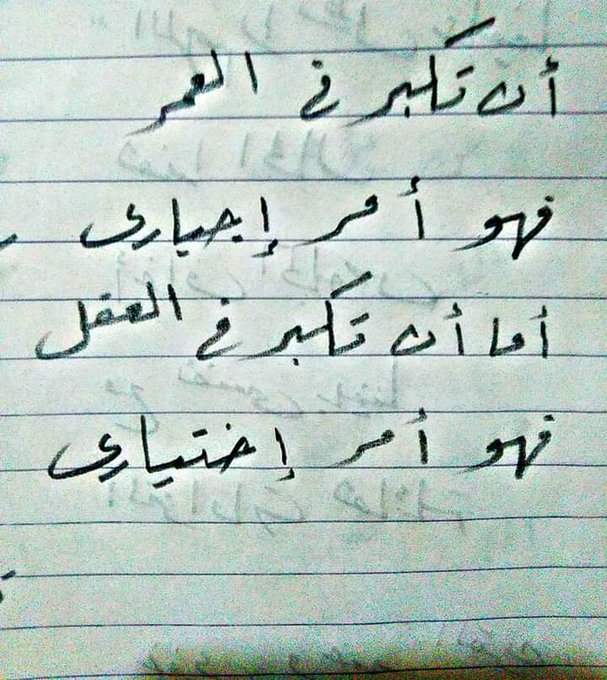 أن تكبر في العمر
فهو أمر إجباري
أما أن تكبر في العقل
فهو أمر إختياري